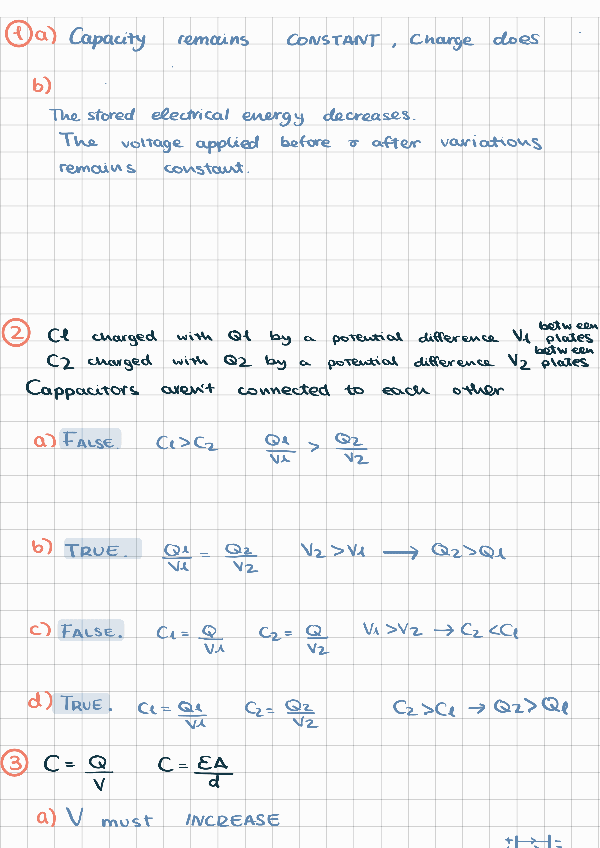 1 a) Capacity remains CONSTANT, Charge does
b)
The stored electrical energy decreases.
The voltage applied before & after variations
remains constant.
2 C1 charged with Q1 by a potential difference V1 between plates
C2 charged with Q2 by a potential difference V2 between plates
Cappacitors aren't connected to each other
a) FALSE. C1 > C2 Q1/V1 > Q2/V2
b) TRUE. Q1/V1 = Q2/V2 V2 > V1 → Q2 > Q1
c) FALSE. C1 = Q/V1 C2 = Q/V2 V1 > V2 → C2 < C1
d) TRUE. C1 = Q1/V1 C2 = Q2/V2 C2 > C1 → Q2 > Q1
3 C = Q/V C = EA/d
a) V must INCREASE